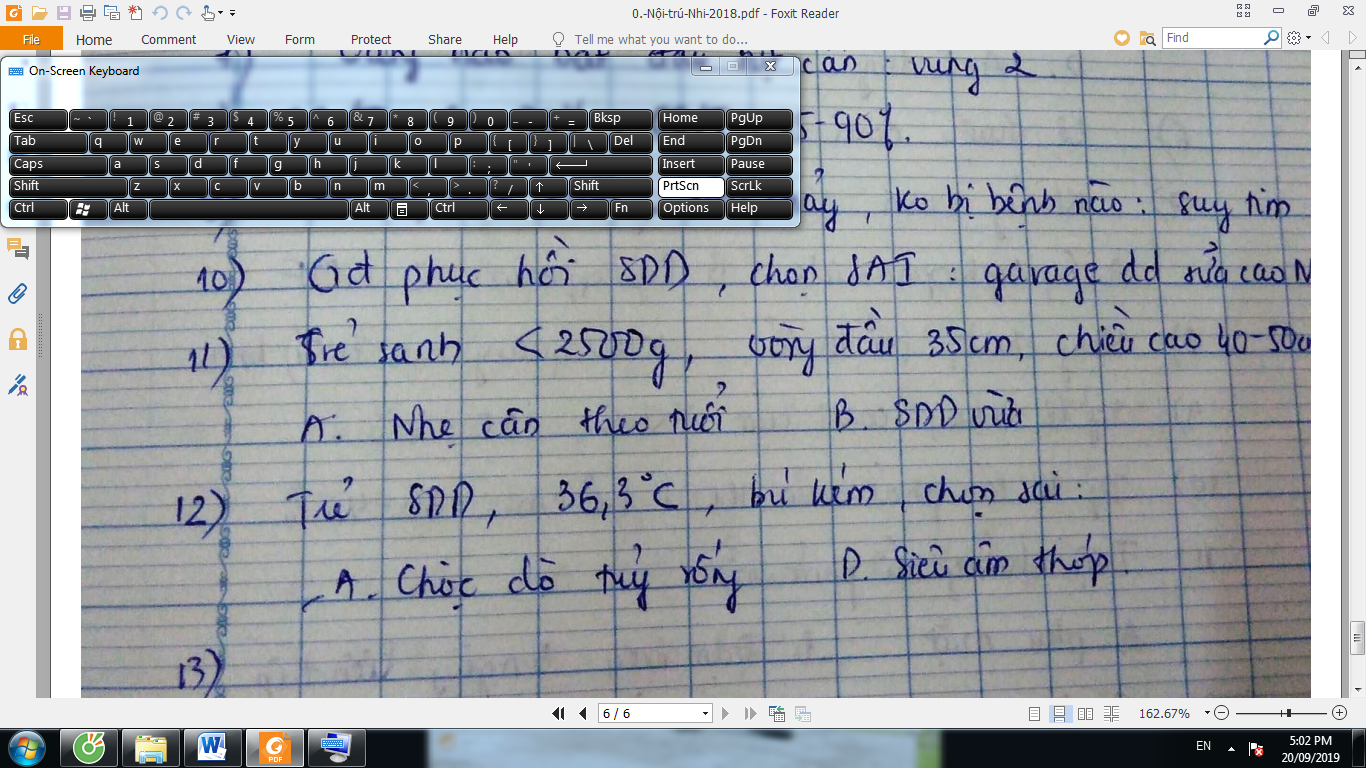 0.-Nội-trú-Nhi-2018.pdf - Foxit Reader
File Home Comment View Form Protect Share Help Tell me what you want to do... Find
On-Screen Keyboard
Esc ~ ` ! 1 @ 2 # 3 $ 4 % 5 ^ 6 & 7 * 8 ( 9 ) 0 _ - + = Bksp Home PgUp
Tab q w e r t y u i o p { [ } ] | \ Del End PgDn
Caps a s d f g h j k l : ; " ' Insert Pause
Shift z x c v b n m < , > . ? / ↑ Shift PrtScn ScrLk
Ctrl Alt Alt Ctrl ← ↓ → Fn Options Help
cân : vùng 2
5-90%.
ảy, ko bị bệnh nào: suy tim
10) Gđ phục hồi SDD, chọn SAI : garage dd sữa cao N
11) Trẻ sanh < 2500g, vòng đầu 35cm, chiều cao 40-50c
A. Nhẹ cân theo tuổi B. SDD vừa
12) Trẻ SDD, 36,3°C, bú kém, chọn sai:
A. Chọc dò tuỷ sống D. Siêu âm thóp.
13)
6 / 6 162.67%
EN 5:02 PM
20/09/2019